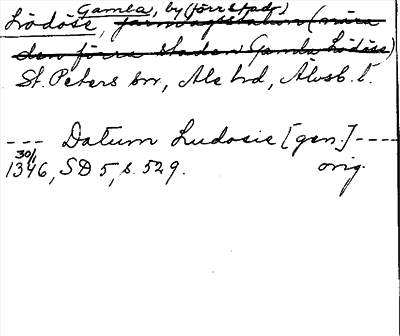 Gamla, by (förr stad)
Lödöse, järnvägsstation (nära
den förra staden Gamla Lödöse)
St. Peters sn, Ale hd, Älvsb. l.
--- Datum Ludosie [gen.] ----
30/1
1346, SD 5, s. 529. orig.